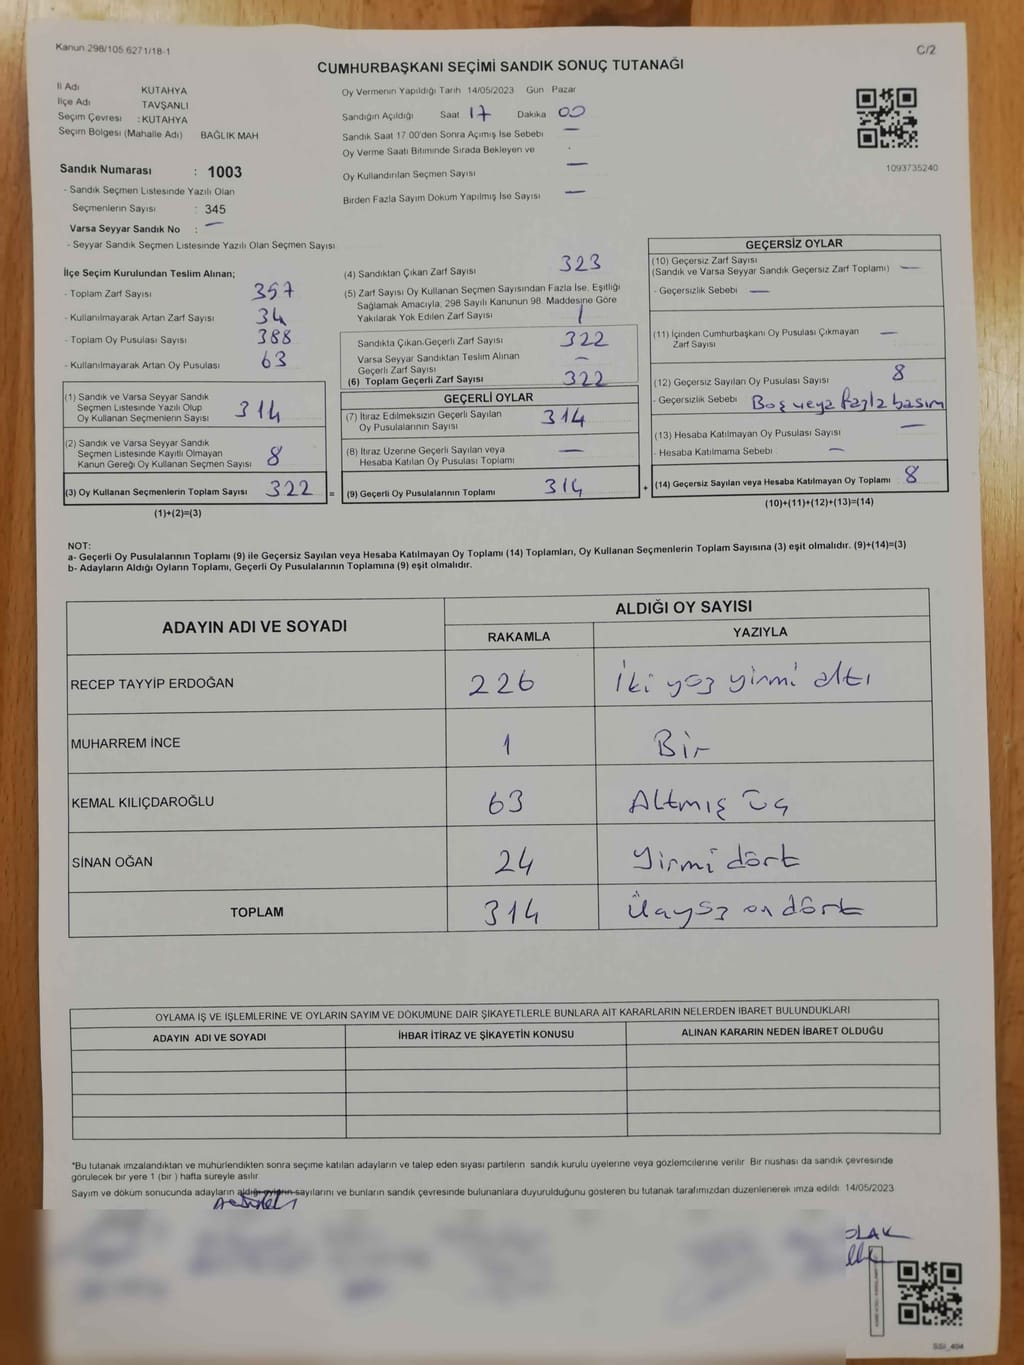 Kanun 298/105 6271/18-1
C/2
CUMHURBAŞKANI SEÇİMİ SANDIK SONUÇ TUTANAĞI
İl Adı KUTAHYA
İlçe Adı TAVŞANLI
Seçim Çevresi : KUTAHYA
Seçim Bölgesi (Mahalle Adı) BAĞLIK MAH
Oy Vermenin Yapıldığı Tarih 14/05/2023 Gün Pazar
Sandığın Açıldığı Saat 17 Dakika 00
Sandık Saat 17 00'den Sonra Açımış İse Sebebi —
Oy Verme Saati Bitiminde Sırada Bekleyen ve
Oy Kullandırılan Seçmen Sayısı —
Birden Fazla Sayım Dokum Yapılmış İse Sayısı —
1093735240
Sandık Numarası : 1003
- Sandık Seçmen Listesinde Yazılı Olan
Seçmenlerin Sayısı : 345
Varsa Seyyar Sandık No : —
- Seyyar Sandık Seçmen Listesinde Yazılı Olan Seçmen Sayısı
İlçe Seçim Kurulundan Teslim Alınan;
- Toplam Zarf Sayısı 357
- Kullanılmayarak Artan Zarf Sayısı 34
- Toplam Oy Pusulası Sayısı 388
- Kullanılmayarak Artan Oy Pusulası 63
(1) Sandık ve Varsa Seyyar Sandık
Seçmen Listesinde Yazılı Olup
Oy Kullanan Seçmenlerin Sayısı 314
(2) Sandık ve Varsa Seyyar Sandık
Seçmen Listesinde Kayıtlı Olmayan
Kanun Gereği Oy Kullanan Seçmen Sayısı 8
(3) Oy Kullanan Seçmenlerin Toplam Sayısı 322 =
(1)+(2)=(3)
(4) Sandıktan Çıkan Zarf Sayısı 323
(5) Zarf Sayısı Oy Kullanan Seçmen Sayısından Fazla İse, Eşitliği
Sağlamak Amacıyla, 298 Sayılı Kanunun 98. Maddesine Göre
Yakılarak Yok Edilen Zarf Sayısı 1
Sandıkta Çıkan Geçerli Zarf Sayısı 322
Varsa Seyyar Sandıktan Teslim Alınan
Geçerli Zarf Sayısı —
(6) Toplam Geçerli Zarf Sayısı 322
GEÇERLİ OYLAR
(7) İtiraz Edilmeksizin Geçerli Sayılan
Oy Pusulalarının Sayısı 314
(8) İtiraz Uzerine Geçerli Sayılan veya
Hesaba Katılan Oy Pusulası Toplamı —
(9) Geçerli Oy Pusulalarının Toplamı 314 +
GEÇERSİZ OYLAR
(10) Geçersiz Zarf Sayısı
(Sandık ve Varsa Seyyar Sandık Geçersiz Zarf Toplamı) —
- Geçersizlik Sebebi —
(11) İçinden Cumhurbaşkanı Oy Pusulası Çıkmayan
Zarf Sayısı —
(12) Geçersiz Sayılan Oy Pusulası Sayısı 8
- Geçersizlik Sebebi Boş veya fazla basım
(13) Hesaba Katılmayan Oy Pusulası Sayısı —
- Hesaba Katılmama Sebebi —
(14) Geçersiz Sayılan veya Hesaba Katılmayan Oy Toplamı 8
(10)+(11)+(12)+(13)=(14)
NOT:
a- Geçerli Oy Pusulalarının Toplamı (9) ile Geçersiz Sayılan veya Hesaba Katılmayan Oy Toplamı (14) Toplamları, Oy Kullanan Seçmenlerin Toplam Sayısına (3) eşit olmalıdır. (9)+(14)=(3)
b- Adayların Aldığı Oyların Toplamı, Geçerli Oy Pusulalarının Toplamına (9) eşit olmalıdır.
ADAYIN ADI VE SOYADI
ALDIĞI OY SAYISI
RAKAMLA YAZIYLA
RECEP TAYYİP ERDOĞAN 226 İki yüz yirmi altı
MUHARREM İNCE 1 Bir
KEMAL KILIÇDAROĞLU 63 Altmış üç
SİNAN OĞAN 24 Yirmi dört
TOPLAM 314 Üçyüz on dört
OYLAMA İŞ VE İŞLEMLERİNE VE OYLARIN SAYIM VE DÖKUMUNE DAİR ŞİKAYETLERLE BUNLARA AİT KARARLARIN NELERDEN İBARET BULUNDUKLARI
ADAYIN ADI VE SOYADI İHBAR İTİRAZ VE ŞİKAYETİN KONUSU ALINAN KARARIN NEDEN İBARET OLDUĞU
*Bu tutanak imzalandıktan ve mühürlendikten sonra seçime katılan adayların ve talep eden siyasi partilerin sandık kurulu üyelerine veya gözlemcilerine verilir Bir nüshası da sandık çevresinde
görülecek bir yere 1 (bir ) hafta süreyle asılır
Sayım ve döküm sonucunda adayların aldığı oyların sayılarını ve bunların sandık çevresinde bulunanlara duyurulduğunu gösteren bu tutanak tarafımızdan düzenlenerek imza edildi 14/05/2023
OLAK